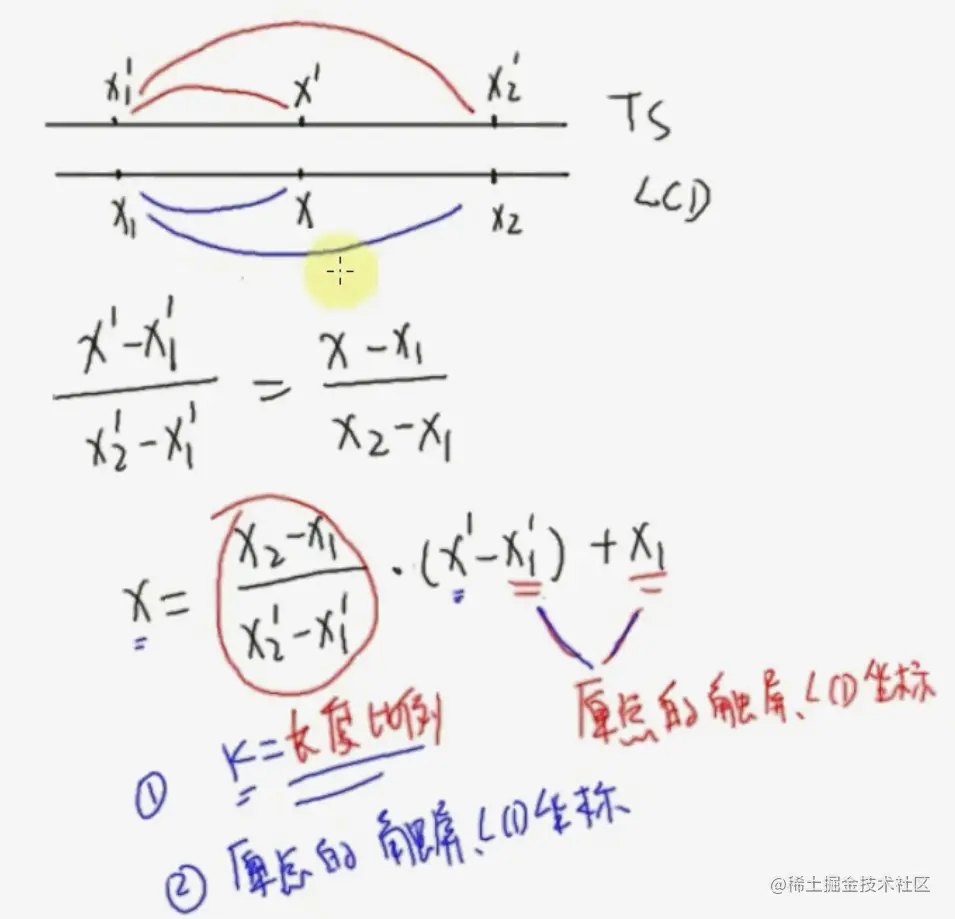 x₁' x' x₂' TS
x₁ x x₂ LCD
(x'-x₁')/(x₂'-x₁') = (x-x₁)/(x₂-x₁)
x = (x₂-x₁)/(x₂'-x₁') · (x'-x₁') + x₁
原点的触屏、LCD坐标
① K=长度比例
② 原点的触屏、LCD坐标
@稀土掘金技术社区